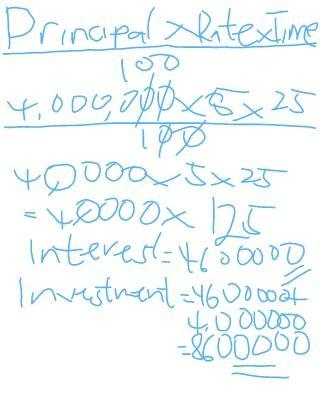 Principal x Rate x Time
100
4,000,000 x 5 x 25
100
40000 x 5 x 25
= 40000 x 125
Interest = 4600000
Investment = 4600000 +
4,000000
= 8600000